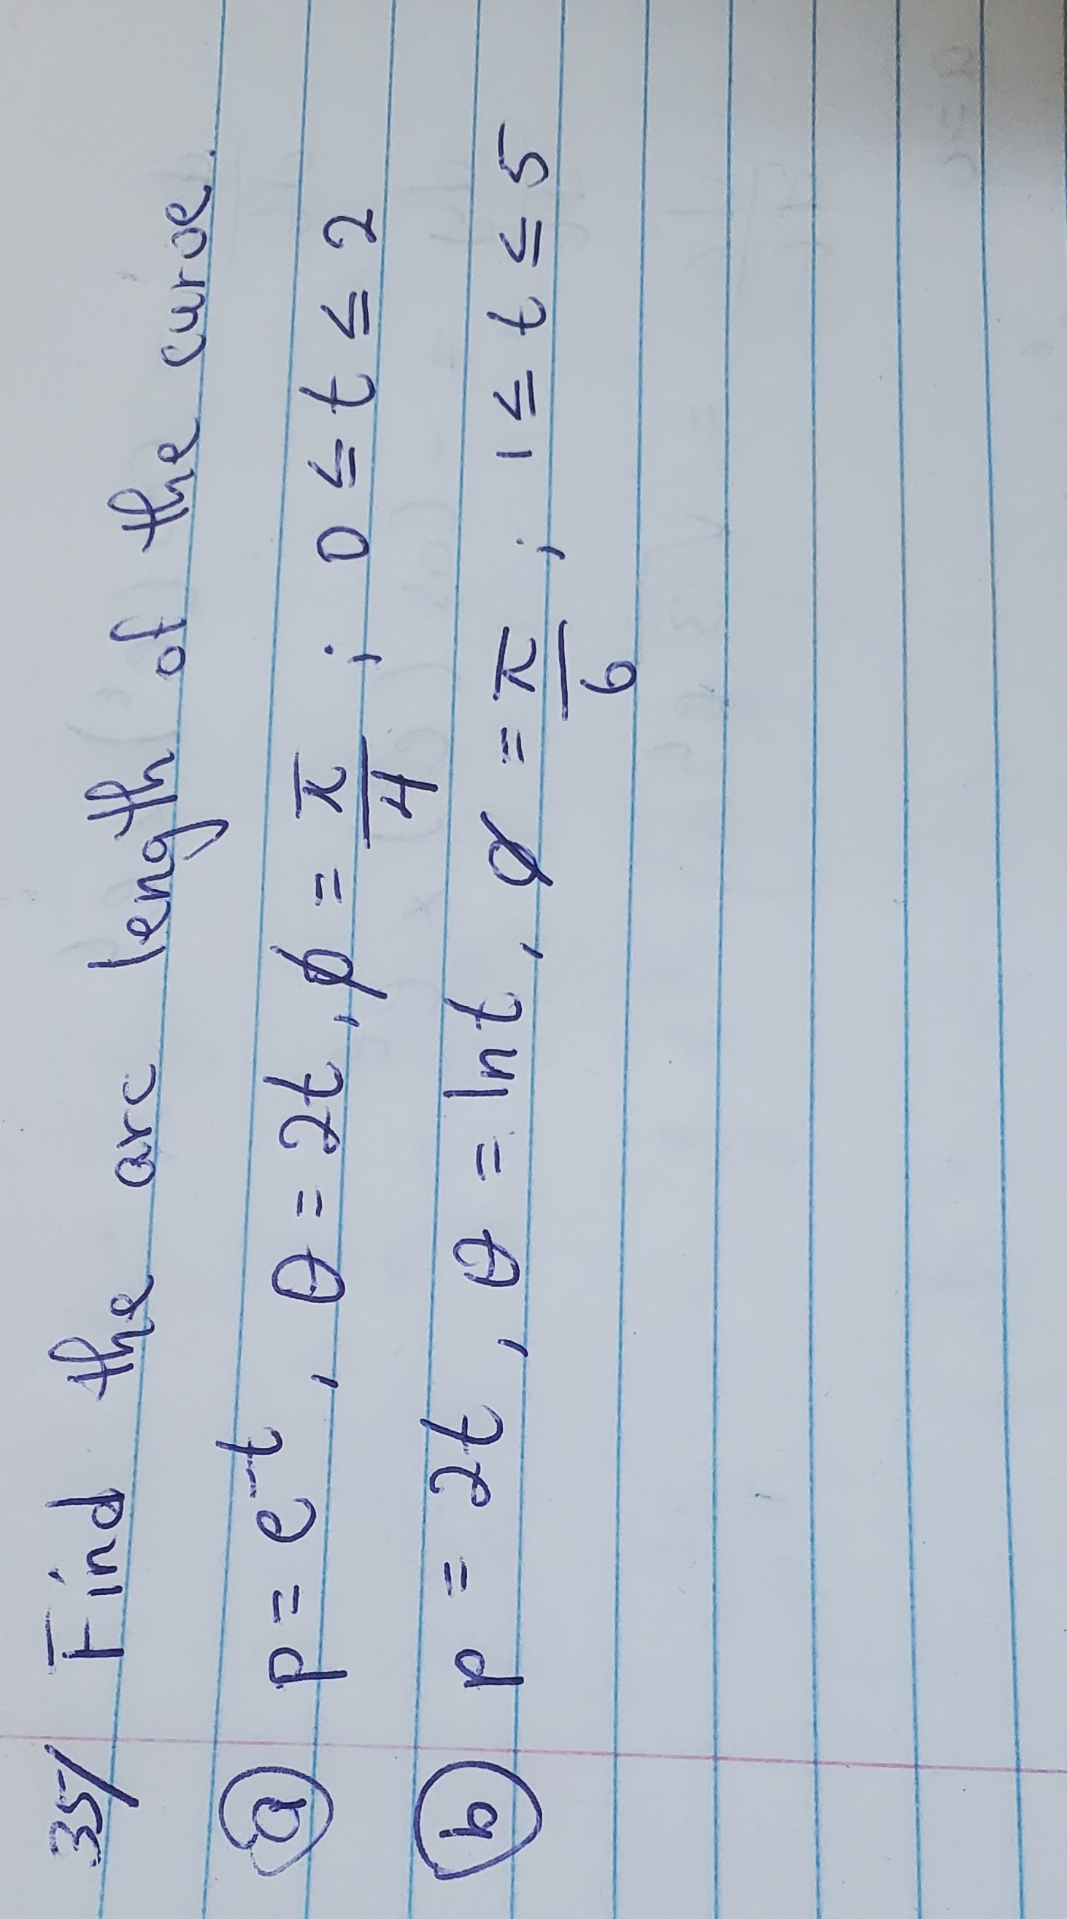 35/ Find the arc length of the curve.
(a) ρ = e^-t, θ = 2t, φ = π/4 ; 0 ≤ t ≤ 2
(b) ρ = 2t, θ = ln t, φ = π/6 ; 1 ≤ t ≤ 5